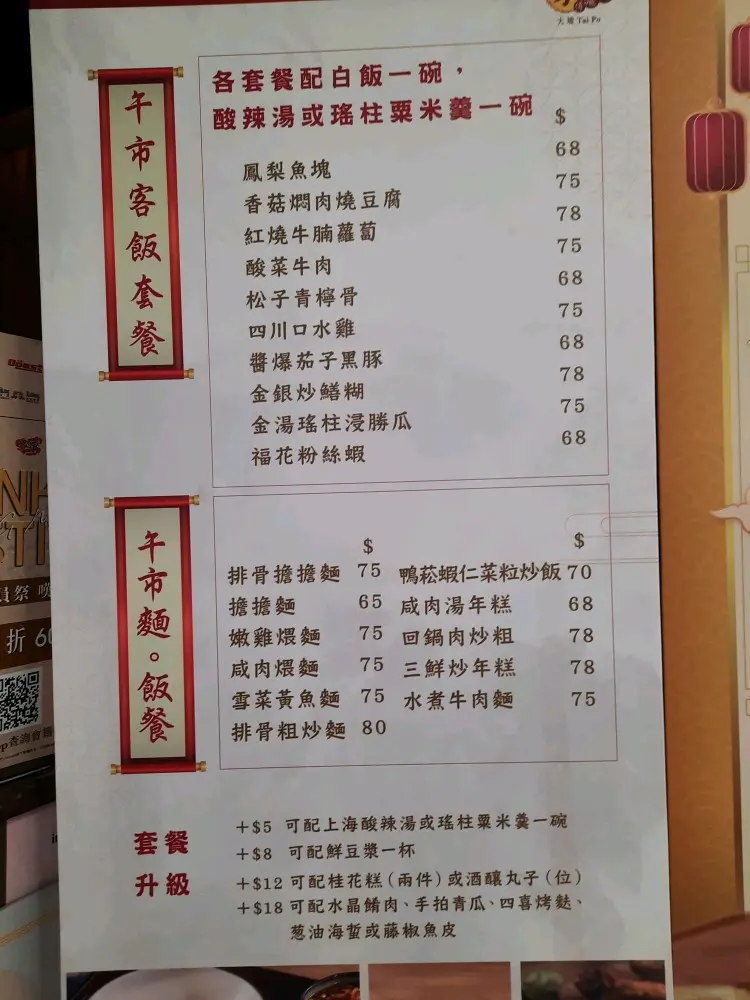 大埔 Tai Po
午市客飯套餐
各套餐配白飯一碗，
酸辣湯或瑤柱粟米羹一碗
$
鳳梨魚塊 68
香菇燜肉燒豆腐 75
紅燒牛腩蘿蔔 78
酸菜牛肉 75
松子青檸骨 68
四川口水雞 75
醬爆茄子黑豚 68
金銀炒鱔糊 78
金湯瑤柱浸勝瓜 75
福花粉絲蝦 68
午市麵。飯餐
$ $
排骨擔擔麵 75 鴨菘蝦仁菜粒炒飯 70
擔擔麵 65 咸肉湯年糕 68
嫩雞煨麵 75 回鍋肉炒粗 78
咸肉煨麵 75 三鮮炒年糕 78
雪菜黃魚麵 75 水煮牛肉麵 75
排骨粗炒麵 80
套餐
升級
+$5 可配上海酸辣湯或瑤柱粟米羹一碗
+$8 可配鮮豆漿一杯
+$12 可配桂花糕(兩件)或酒釀丸子(位)
+$18 可配水晶餚肉、手拍青瓜、四喜烤麩、
葱油海蜇或藤椒魚皮
折 60